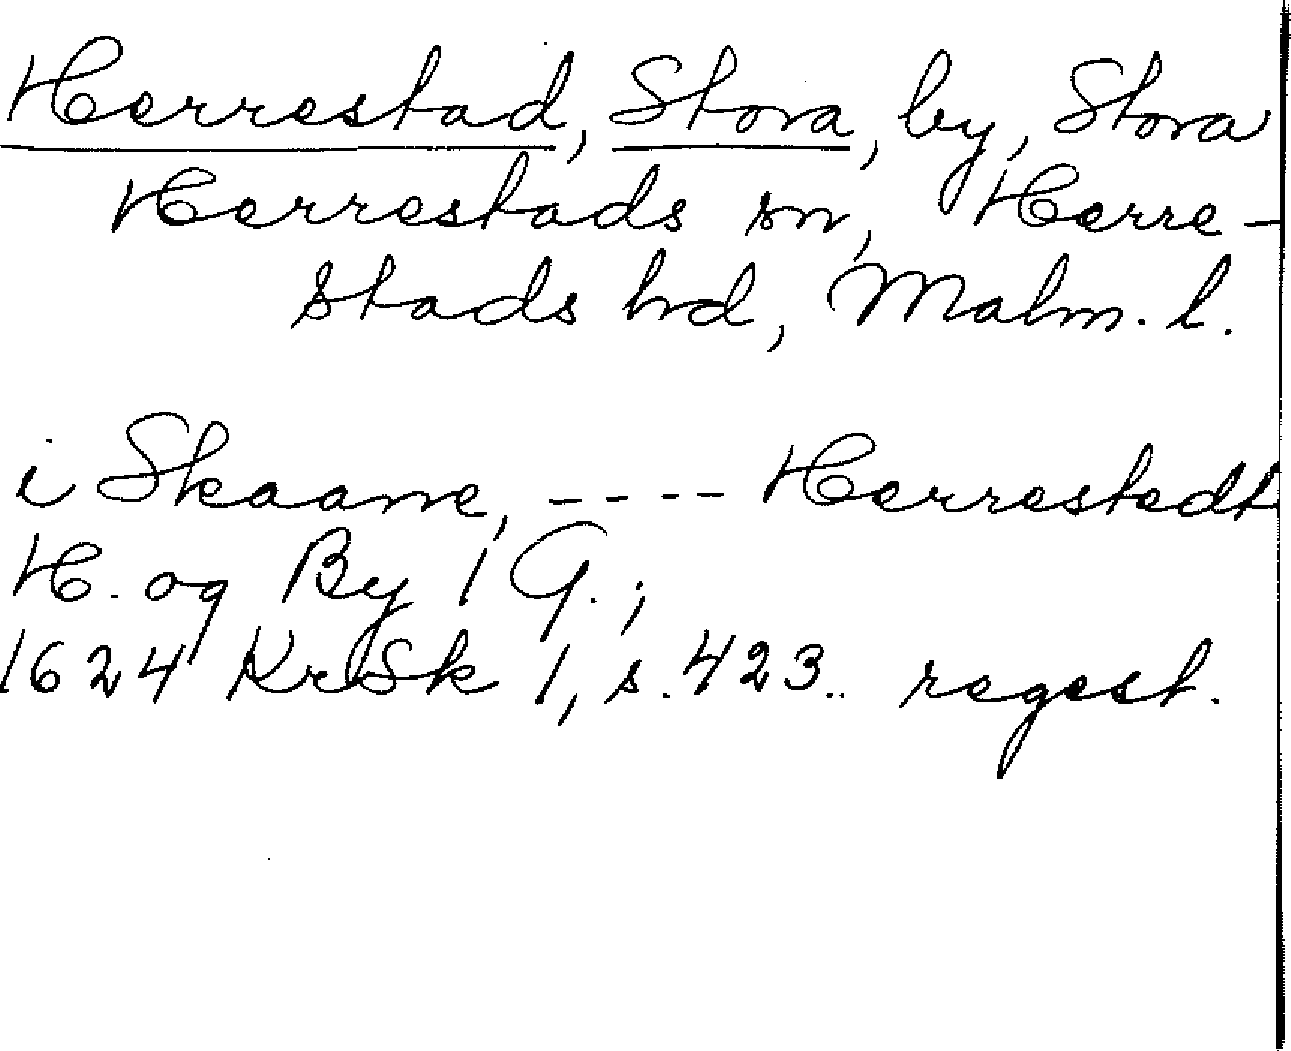 Herrestad, Stora, by, Stora
Herrestads sn, Herre-
stads hd, Malm. l.
i Skaane, ---- Herrestedt
H. og By 1 G.;
1624 KrSk 1, s. 423.. regest.